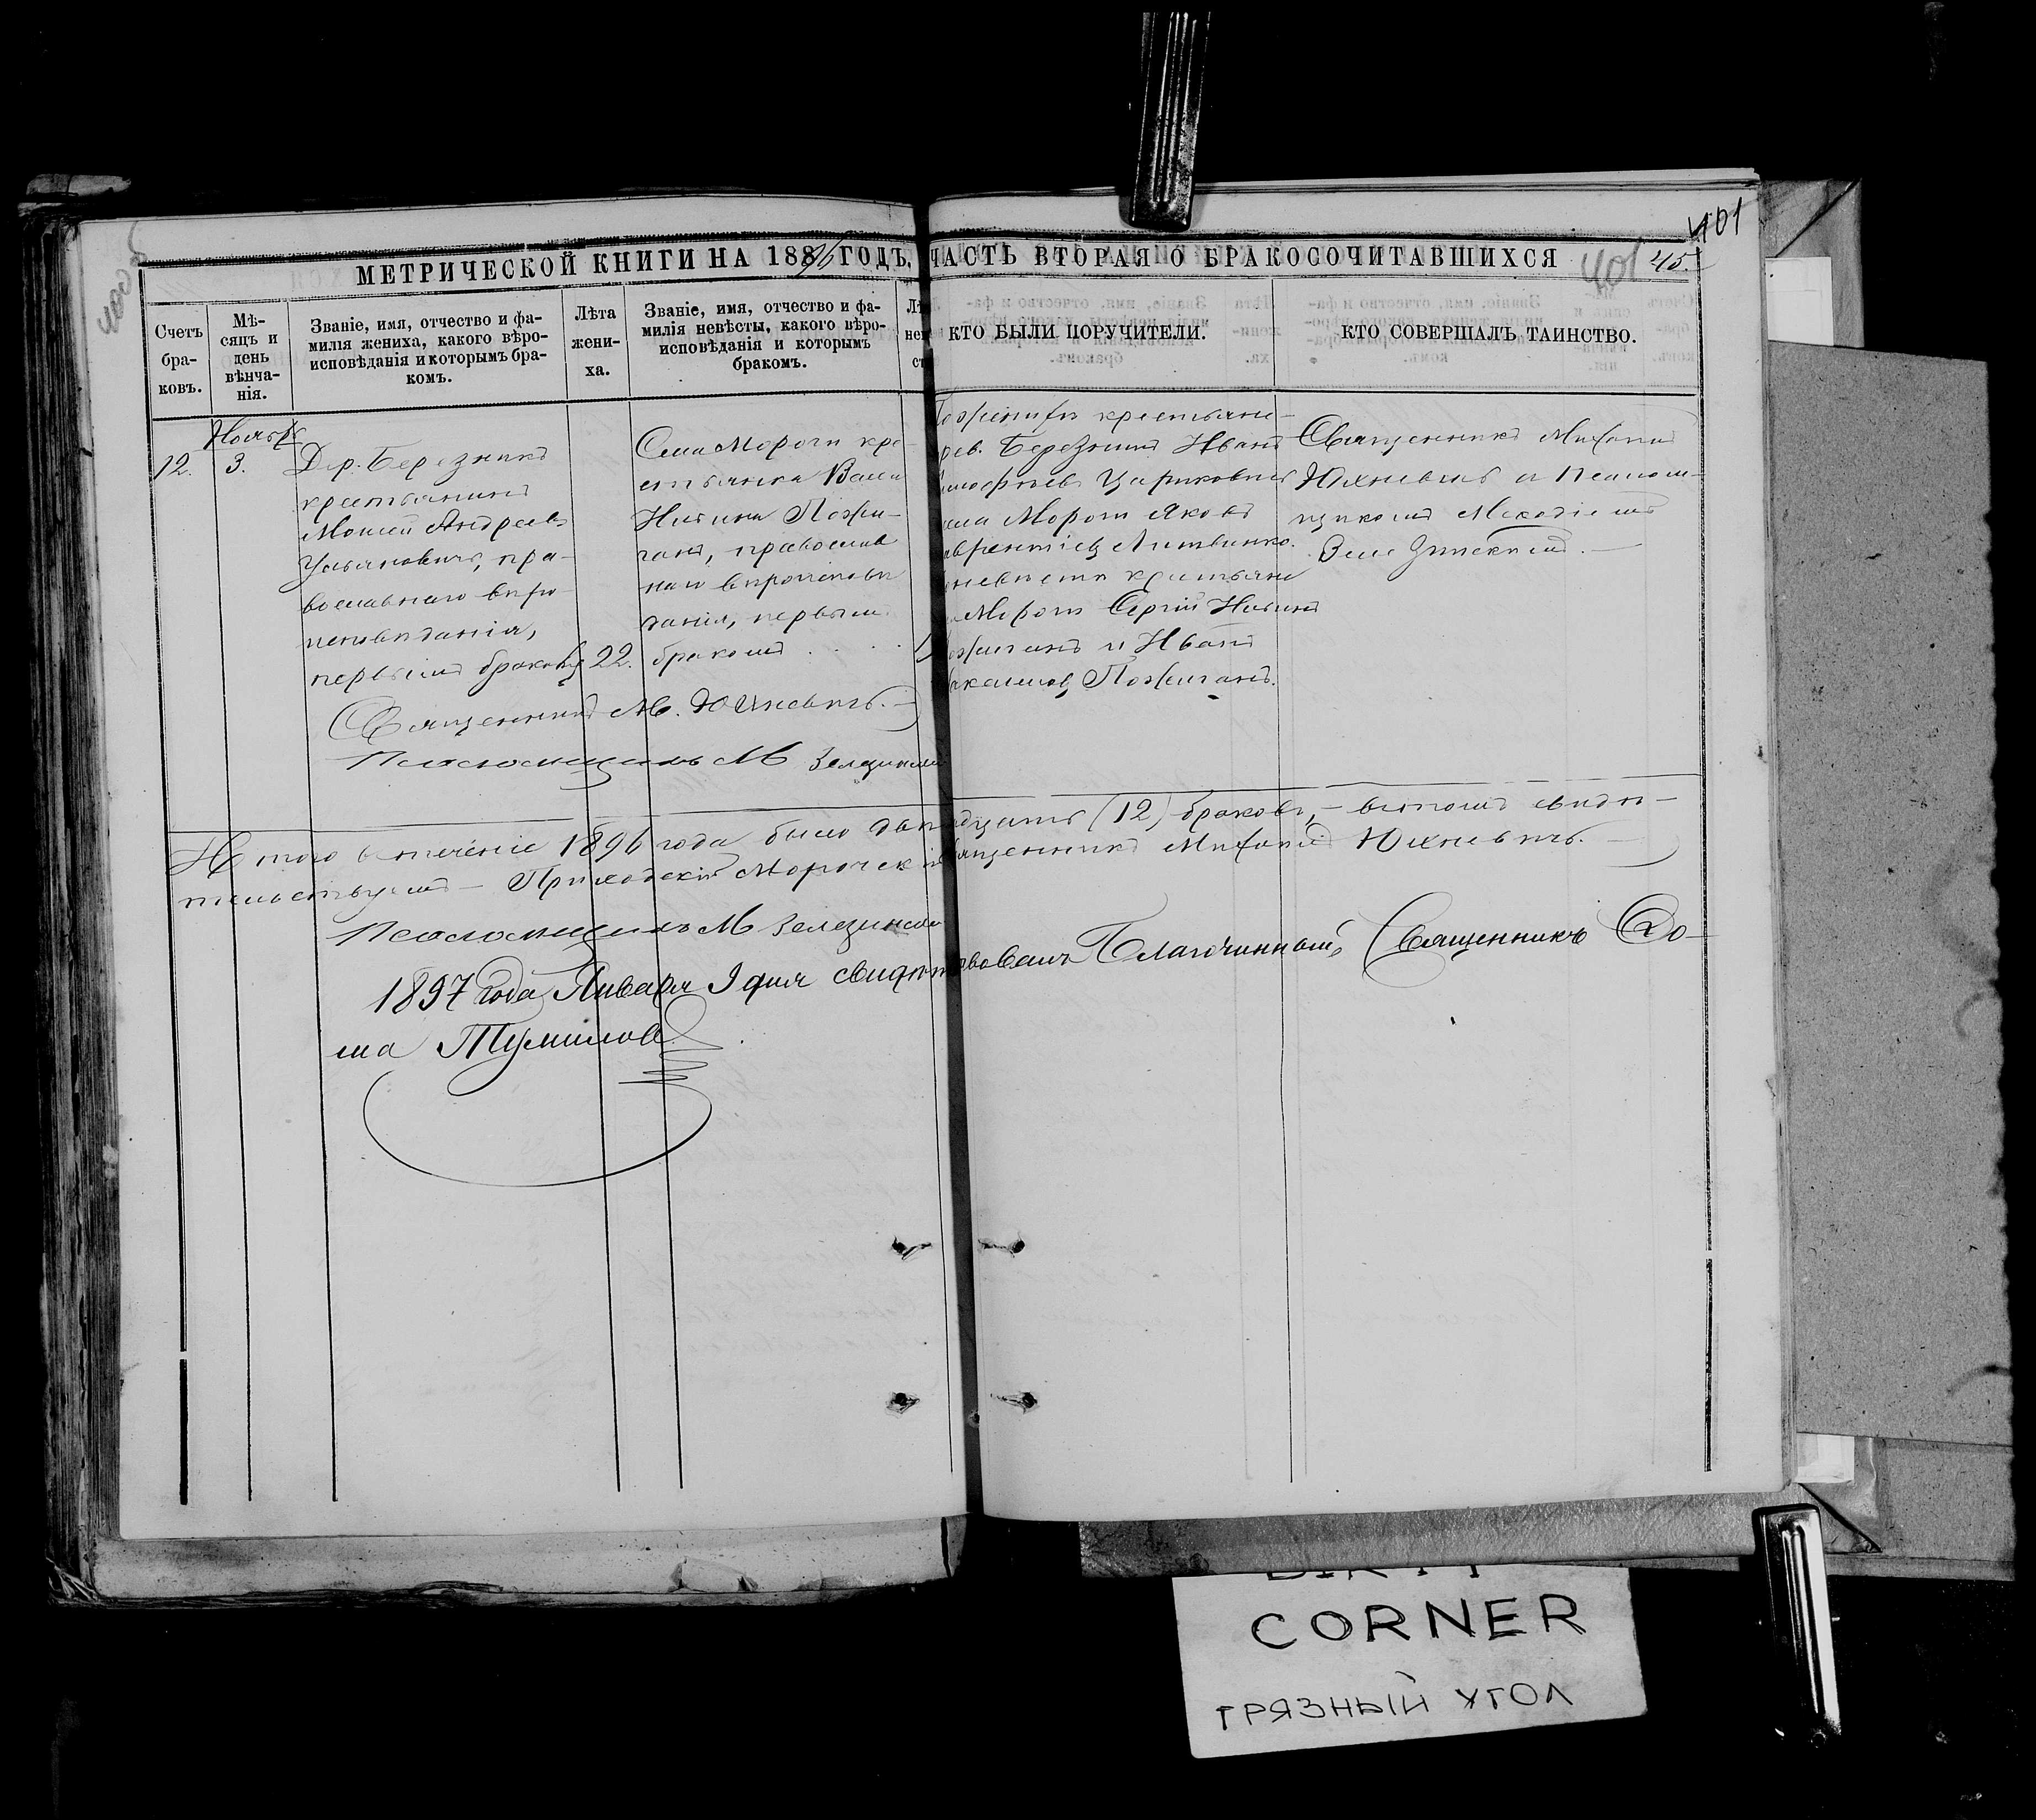 401
401 45.
МЕТРИЧЕСКОЙ КНИГИ НА 1896 ГОДЪ, ЧАСТЬ ВТОРАЯ О БРАКОСОЧИТАВШИХСЯ
Счетъ
бра-
ковъ.
Мѣ-
сяцъ и
день
вѣнча-
нія.
Званіе, имя, отчество и фа-
милія жениха, какого вѣро-
исповѣданія и которымъ бра-
комъ.
Лѣта
жени-
ха.
Званіе, имя, отчество и фа-
милія невѣсты, какого вѣро-
исповѣданія и которымъ
бракомъ.
КТО БЫЛИ ПОРУЧИТЕЛИ.
КТО СОВЕРШАЛЪ ТАИНСТВО.
12.
Ноябрь
3.
Дер. Березника
крестьянинъ
Моисей Андреевъ
Ульяновичъ, пра-
вославнаго вѣро
исповѣданія,
первымъ бракомъ
22.
Села Морочи кре-
стьянка
Никина Пожи-
ганъ, православ
наго вѣроисповѣ
данія, первым
бракомъ
По женихѣ крестьяне
дер. Березника Иванъ
Цариковичъ
села Морочи Яковъ
Лаврентіевъ Литвинко.
по невѣстѣ крестьяне
Морочи Сергій Никинъ
Пожиганъ и Иванъ
Пожиганъ.
Священникъ Михаилъ
Юхневичъ и Псалом-
щикомъ Меѳодіемъ
Зелезинскимъ.
Священникъ М. Юхневичъ.
Псаломщикъ М Зелезинскій
Итого въ теченіе 1896 года было двѣнадцать (12) браковъ, – въ томъ свидѣ-
тельствуемъ – Приходскій Морочскій Священникъ Михаилъ Юхневичъ.
Псаломщикъ М Зелезинскій
1897 года Января 9 дня свидѣтельствовалъ Благочинный, Священникъ Ѳо-
ма Тумилов
CORNER
ГРЯЗНЫЙ УГОЛ